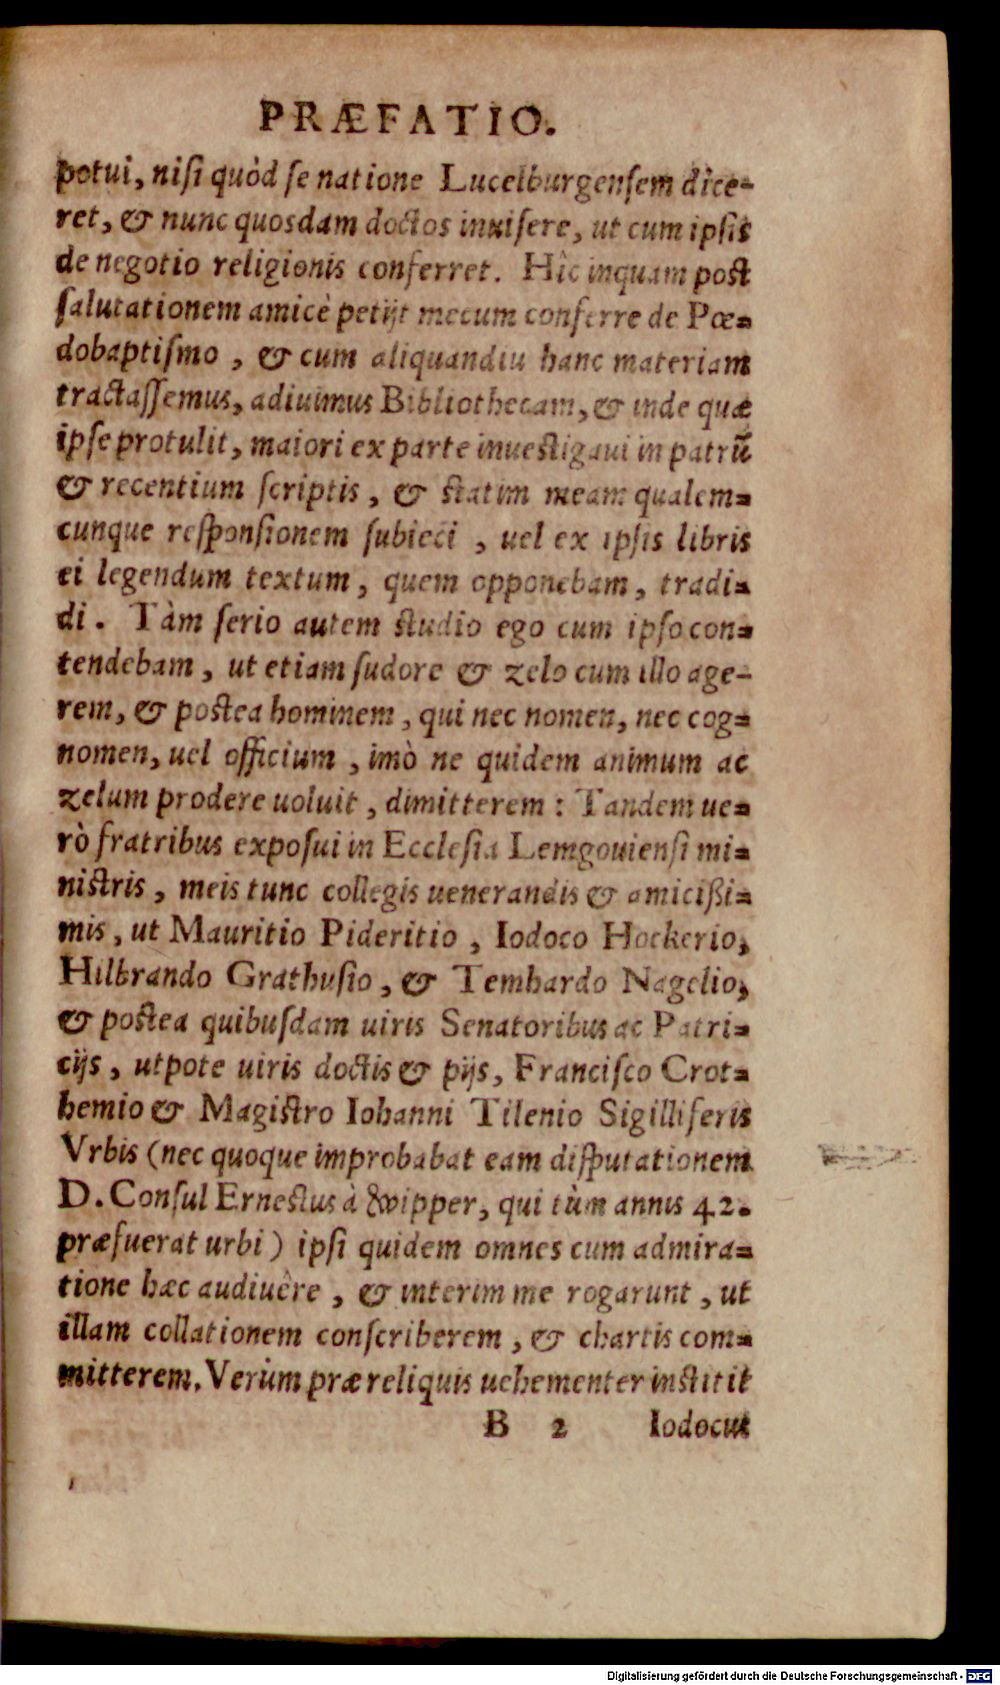 PRÆFATIO.
potui, niſi quòd ſe natione Lucelburgenſem dìce-
ret, & nunc quosdam doctos inuiſere, ut cum ipſis
de negotio religionis conferret. Hîc inquam post
ſalutationem amicè petijt mecum conferre de Pœ=
dobaptiſmo, & cum aliquandiu hanc materiam
tractaſſemus, adiuimus Bibliothecam, & inde quæ
ipſe protulit, maiori ex parte inuestigaui in patrũ
& recentium ſcriptis, & statim meam qualem=
cunque reſponſionem ſubieci, uel ex ipſis libris
ei legendum textum, quem opponebam, tradi=
di. Tàm ſerio autem studio ego cum ipſo con=
tendebam, ut etiam ſudore & zelo cum illo age-
rem, & postea hominem, qui nec nomen, nec cog=
nomen, uel officium, imò ne quidem animum ac
zelum prodere uoluit, dimitterem: Tandem ue=
rò fratribus expoſui in Eccleſia Lemgouienſi mi=
nistris, meis tunc collegis uenerandis & amicißi=
mis, ut Mauritio Pideritio, Iodoco Hockerio,
Hilbrando Grathuſio, & Temhardo Nagelio,
& postea quibuſdam uiris Senatoribus ac Patri=
cijs, utpote uiris doctis & pijs, Franciſco Crot=
hemio & Magistro Iohanni Tilenio Sigilliferis
Vrbis (nec quoque improbabat eam diſputationem
D. Conſul Ernestus à Wipper, qui tùm annis 42.
præfuerat urbi) ipſi quidem omnes cum admira=
tione hæc audiuêre, & interim me rogarunt, ut
illam collationem conſcriberem, & chartis com=
mitterem. Verùm præ reliquis uehementer institit
B 2 Iodocus
Digitalisierung gefördert durch die Deutsche Forschungsgemeinschaft - DFG